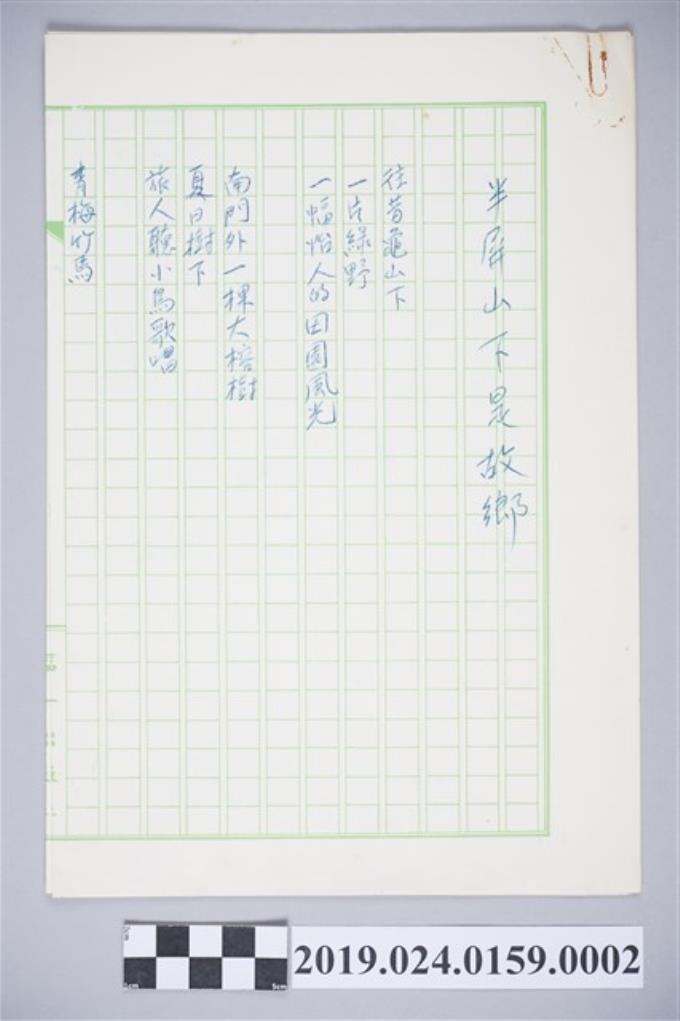 半屏山下是故鄉
往昔龜山下
一片綠野
一幅怡人的田園風光
南門外一棵大榕樹
夏日樹下
旅人聽小鳥歌唱
青梅竹馬
2019.024.0159.0002
0cm
5cm